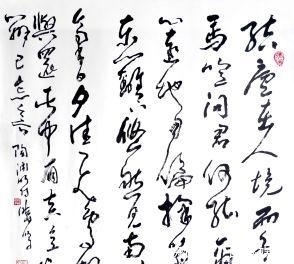 結廬在人境而無
馬喧問君何能爾
心遠地自偏採菊
東籬下悠然見南
山氣日夕佳飛鳥
與還此中有真意
辨已忘言 陶淵明詩